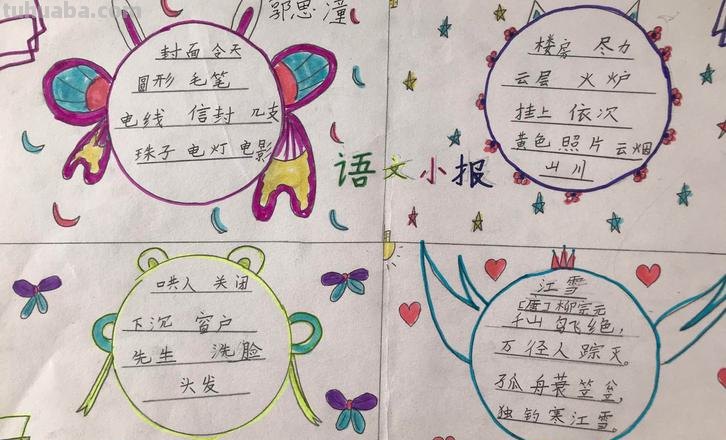 tuhuaba.com
郭思潼
封面 令天
圆形 毛笔
电线 信封 几支
珠子 电灯 电影
楼房 尽力
云层 火炉
挂上 依次
黄色 照片 云烟
山川
语文小报
哄人 关闭
下沉 窗户
先生 洗脸
头发
江雪
[唐]柳宗元
千山鸟飞绝,
万径人踪灭。
孤舟蓑笠翁,
独钓寒江雪。